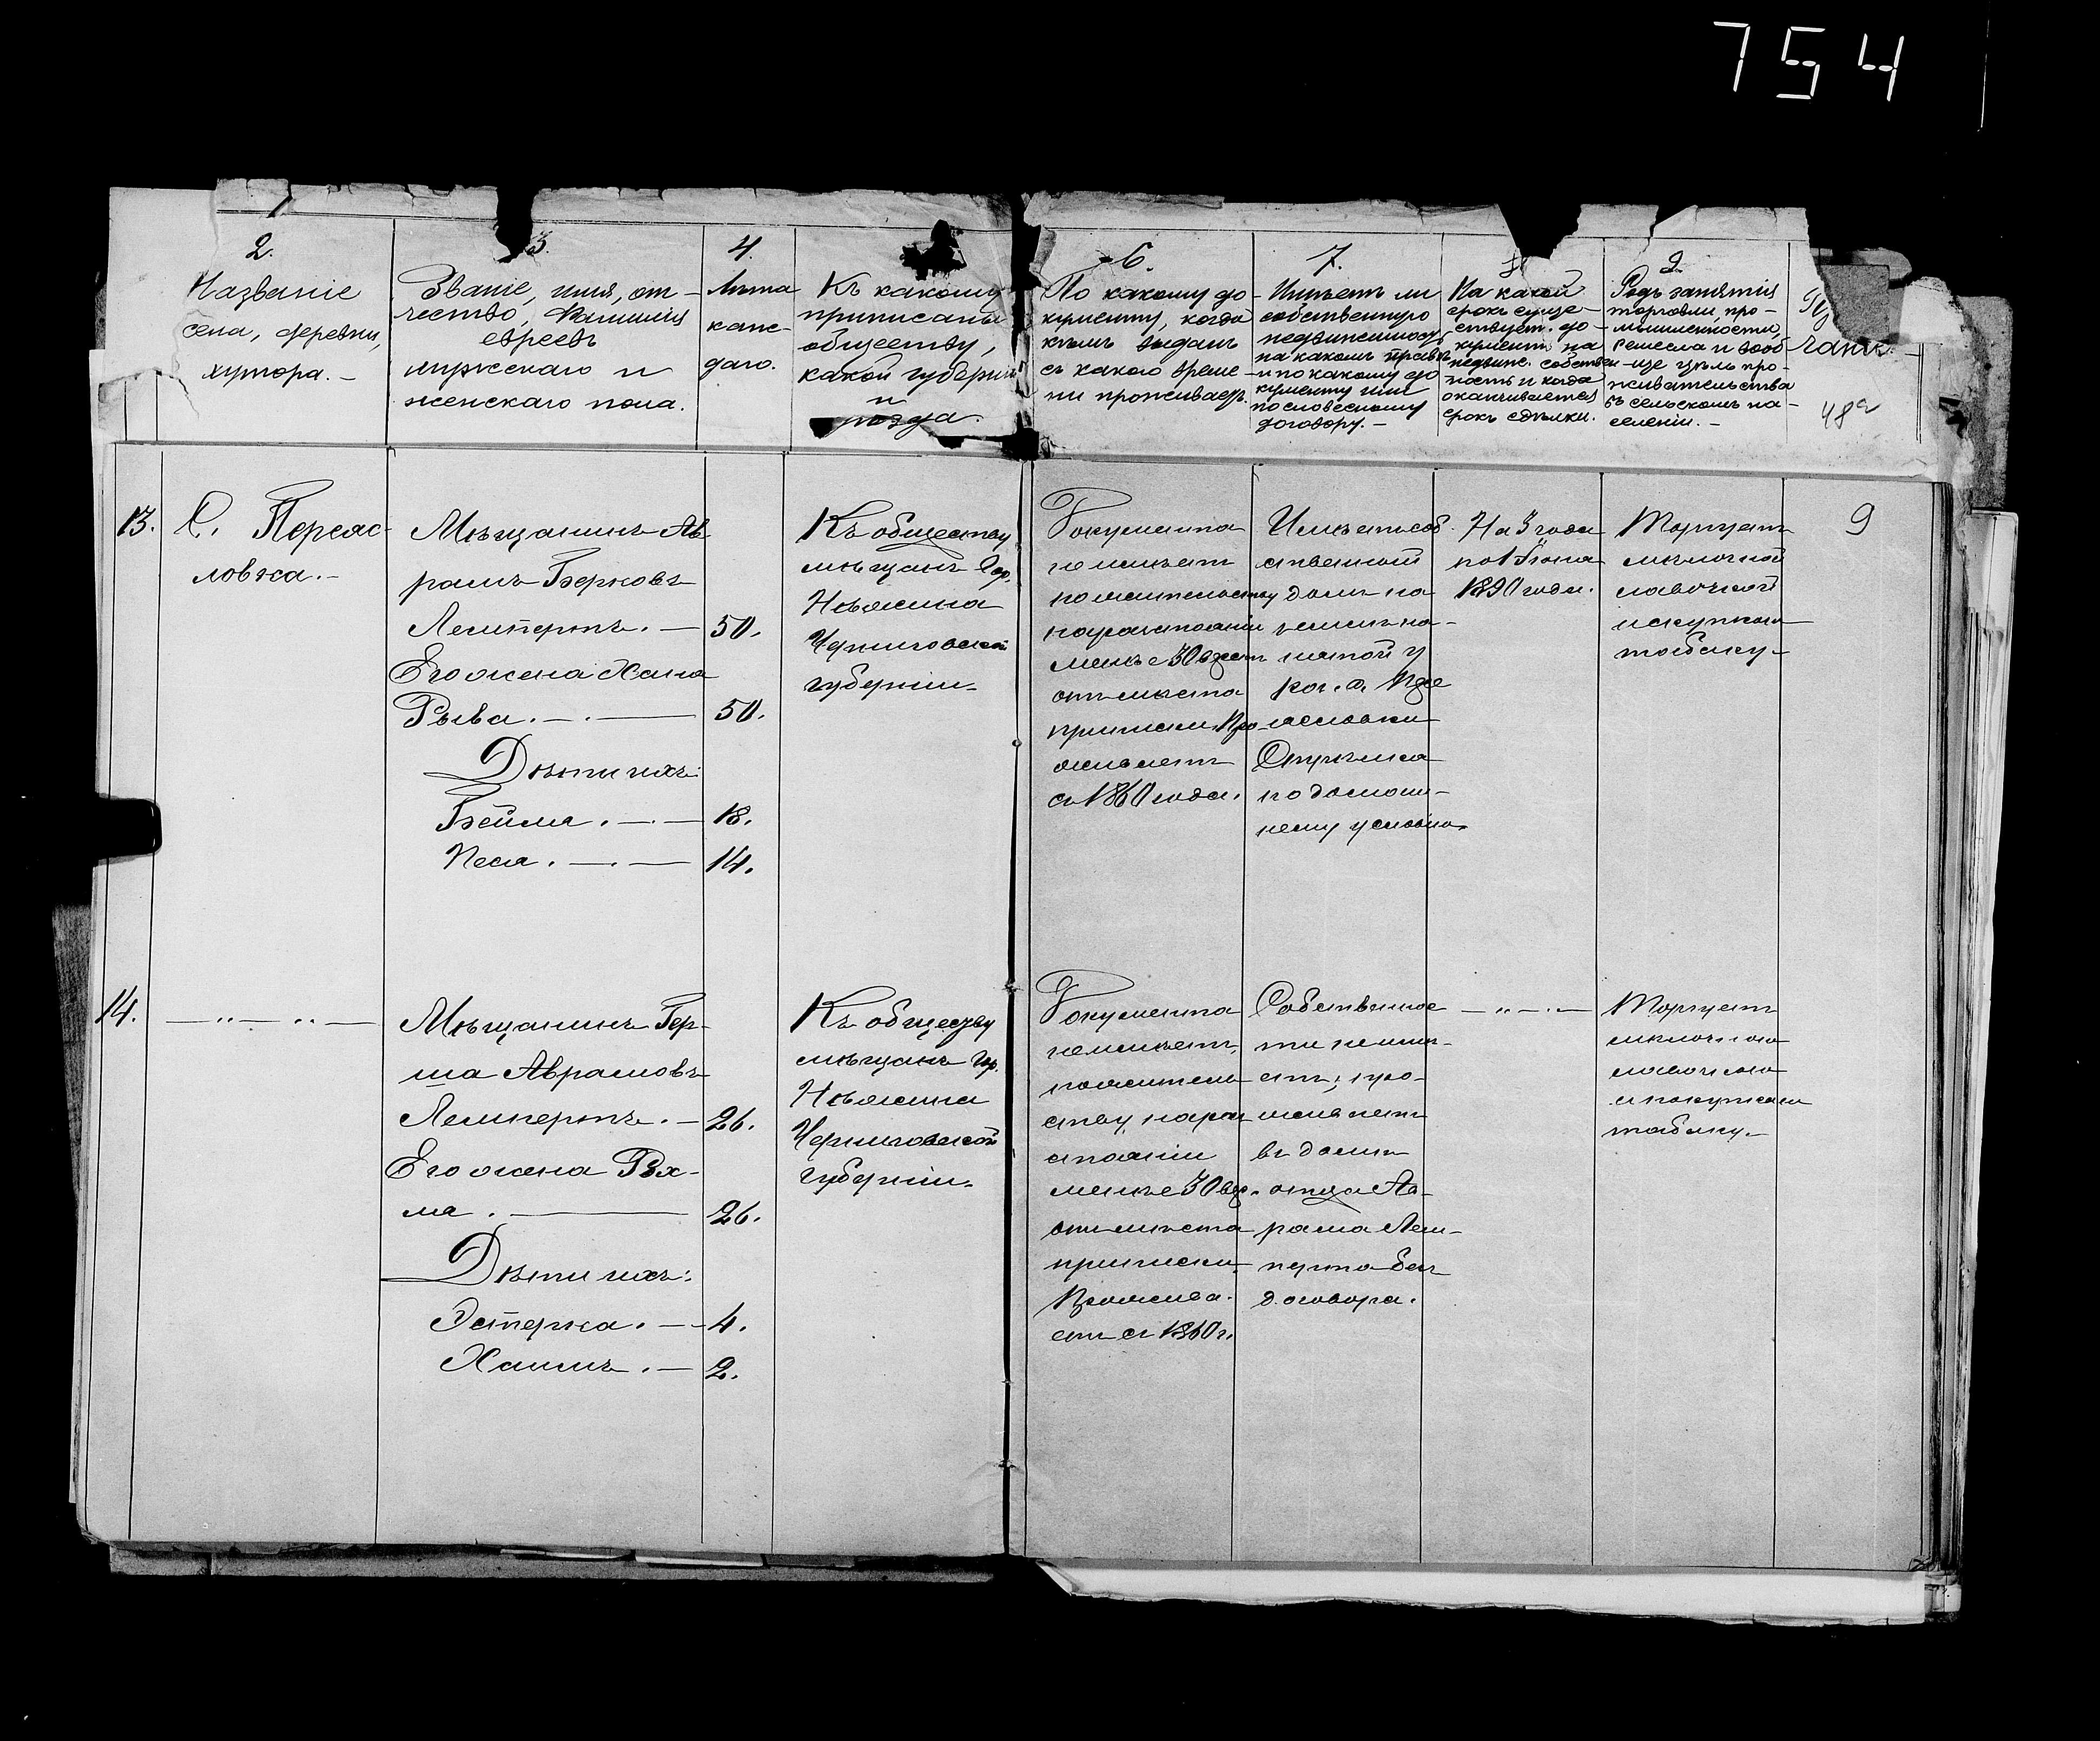 754
2.
Названіе
села, деревни,
хутора. –
3.
Званіе, имя, от-
чество, Фамилія
евреевъ
мужскаго и
женскаго пола.
4.
Лѣта
каж-
даго.
Къ какому
приписаны
обществу,
какой губерніи
и
уѣзда.
6.
По какому до-
кументу, когда
кѣмъ выданъ
съ какого време-
ни проживаетъ.
7.
Имѣетъ ли
собственную
недвижимость,
на какомъ правѣ
и по какому до-
кументу или
по словесному
договору. –
На какой
срокъ суще-
ствуетъ до-
кументъ на
недвиж. собствен-
ность и когда
оканчивается
срокъ сдѣлки.
9.
Родъ занятія
торговли, про-
мышленности,
ремесла и вооб-
ще цѣль про-
живательства
въ сельскомъ на-
селеніи. –
48
13.
С. Переяс-
ловка. –
Мѣщанинъ Ав-
рамъ Берковъ
Лемпертъ. – 50.
Его жена Хана
Рыва. – . – 50.
Дѣти ихъ:
Бейла . – . – 18.
Песя . – . – 14.
Къ обществу
мѣщанъ гор.
Нѣжина
Черниговской
губерніи.
Документа
не имѣетъ
по жительству
на разстояніи
менѣе 30 верстъ
отъ мѣста
приписки. Про-
живаетъ
съ 1860 года.
Имѣетъ соб-
ственный
домъ на
землѣ на-
нятой у
Пере-
ясловки
по домаш-
нему условію.
На 3 года
по 1 Іюня
1890 года.
Торгуетъ
мѣлочной
лавочкой
и скупкою
табаку. –
9
14.
– „ – „ –
Мѣщанинъ Гер-
ша Аврамовъ
Лемпертъ. – 26.
Его жена Рях-
ма . – 26.
Дѣти ихъ:
Эстерка . – 4.
Хаимъ . – 2.
Къ обществу
мѣщанъ гор.
Нѣжина
Черниговской
губерніи.
Документа
не имѣетъ,
по житель-
ству на раз-
стояніи
менѣе 30 вер.
отъ мѣста
приписки.
Прожива-
етъ съ 1860 г.
Собственнос-
ти не имѣ-
етъ; про-
живаетъ
въ домѣ
отца Ав-
рама Лем-
перта безъ
договора.
– „ – „ –
Торгуетъ
мѣлочною
лавочкою
и скупкою
табаку. –